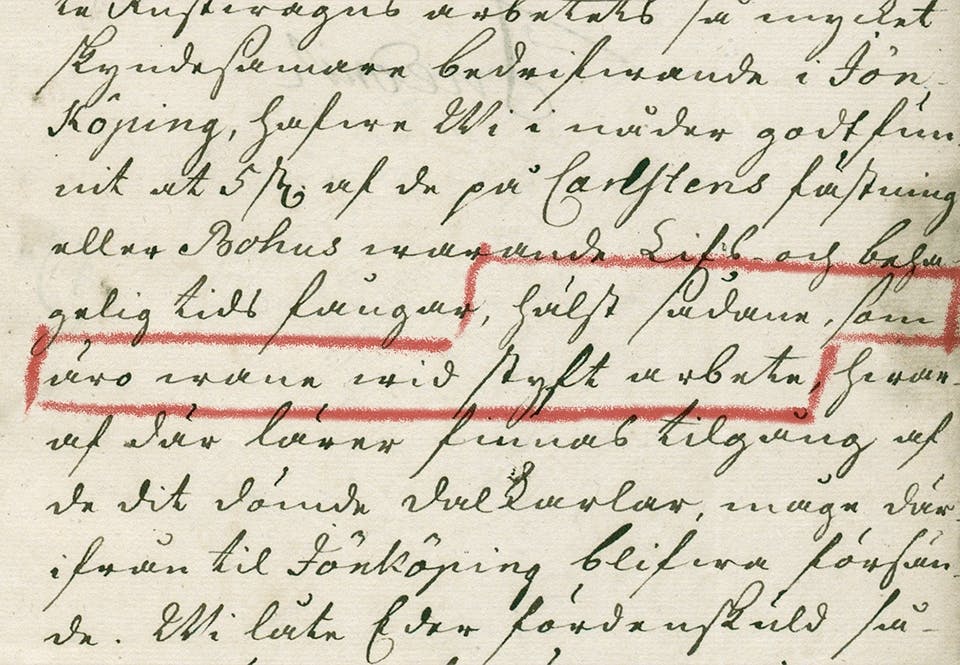 te Rustwagns arbetets så mycket
skyndesamare bedrifwande i Jön-
Köping, hafwe Wi i nåder godtfun-
nit at 5 st. af de på Carlstens fästning
eller Bohus warande Lifs- och beha-
gelig tids fångar, hälst sådane, som
äro wane wid styft arbete, hwar-
af där lärer finnas tilgång af
de dit dömde Dalkarlar, måge där-
ifrån til Jönköping blifwa försän-
de. Wi låte Eder fördenskuld så-